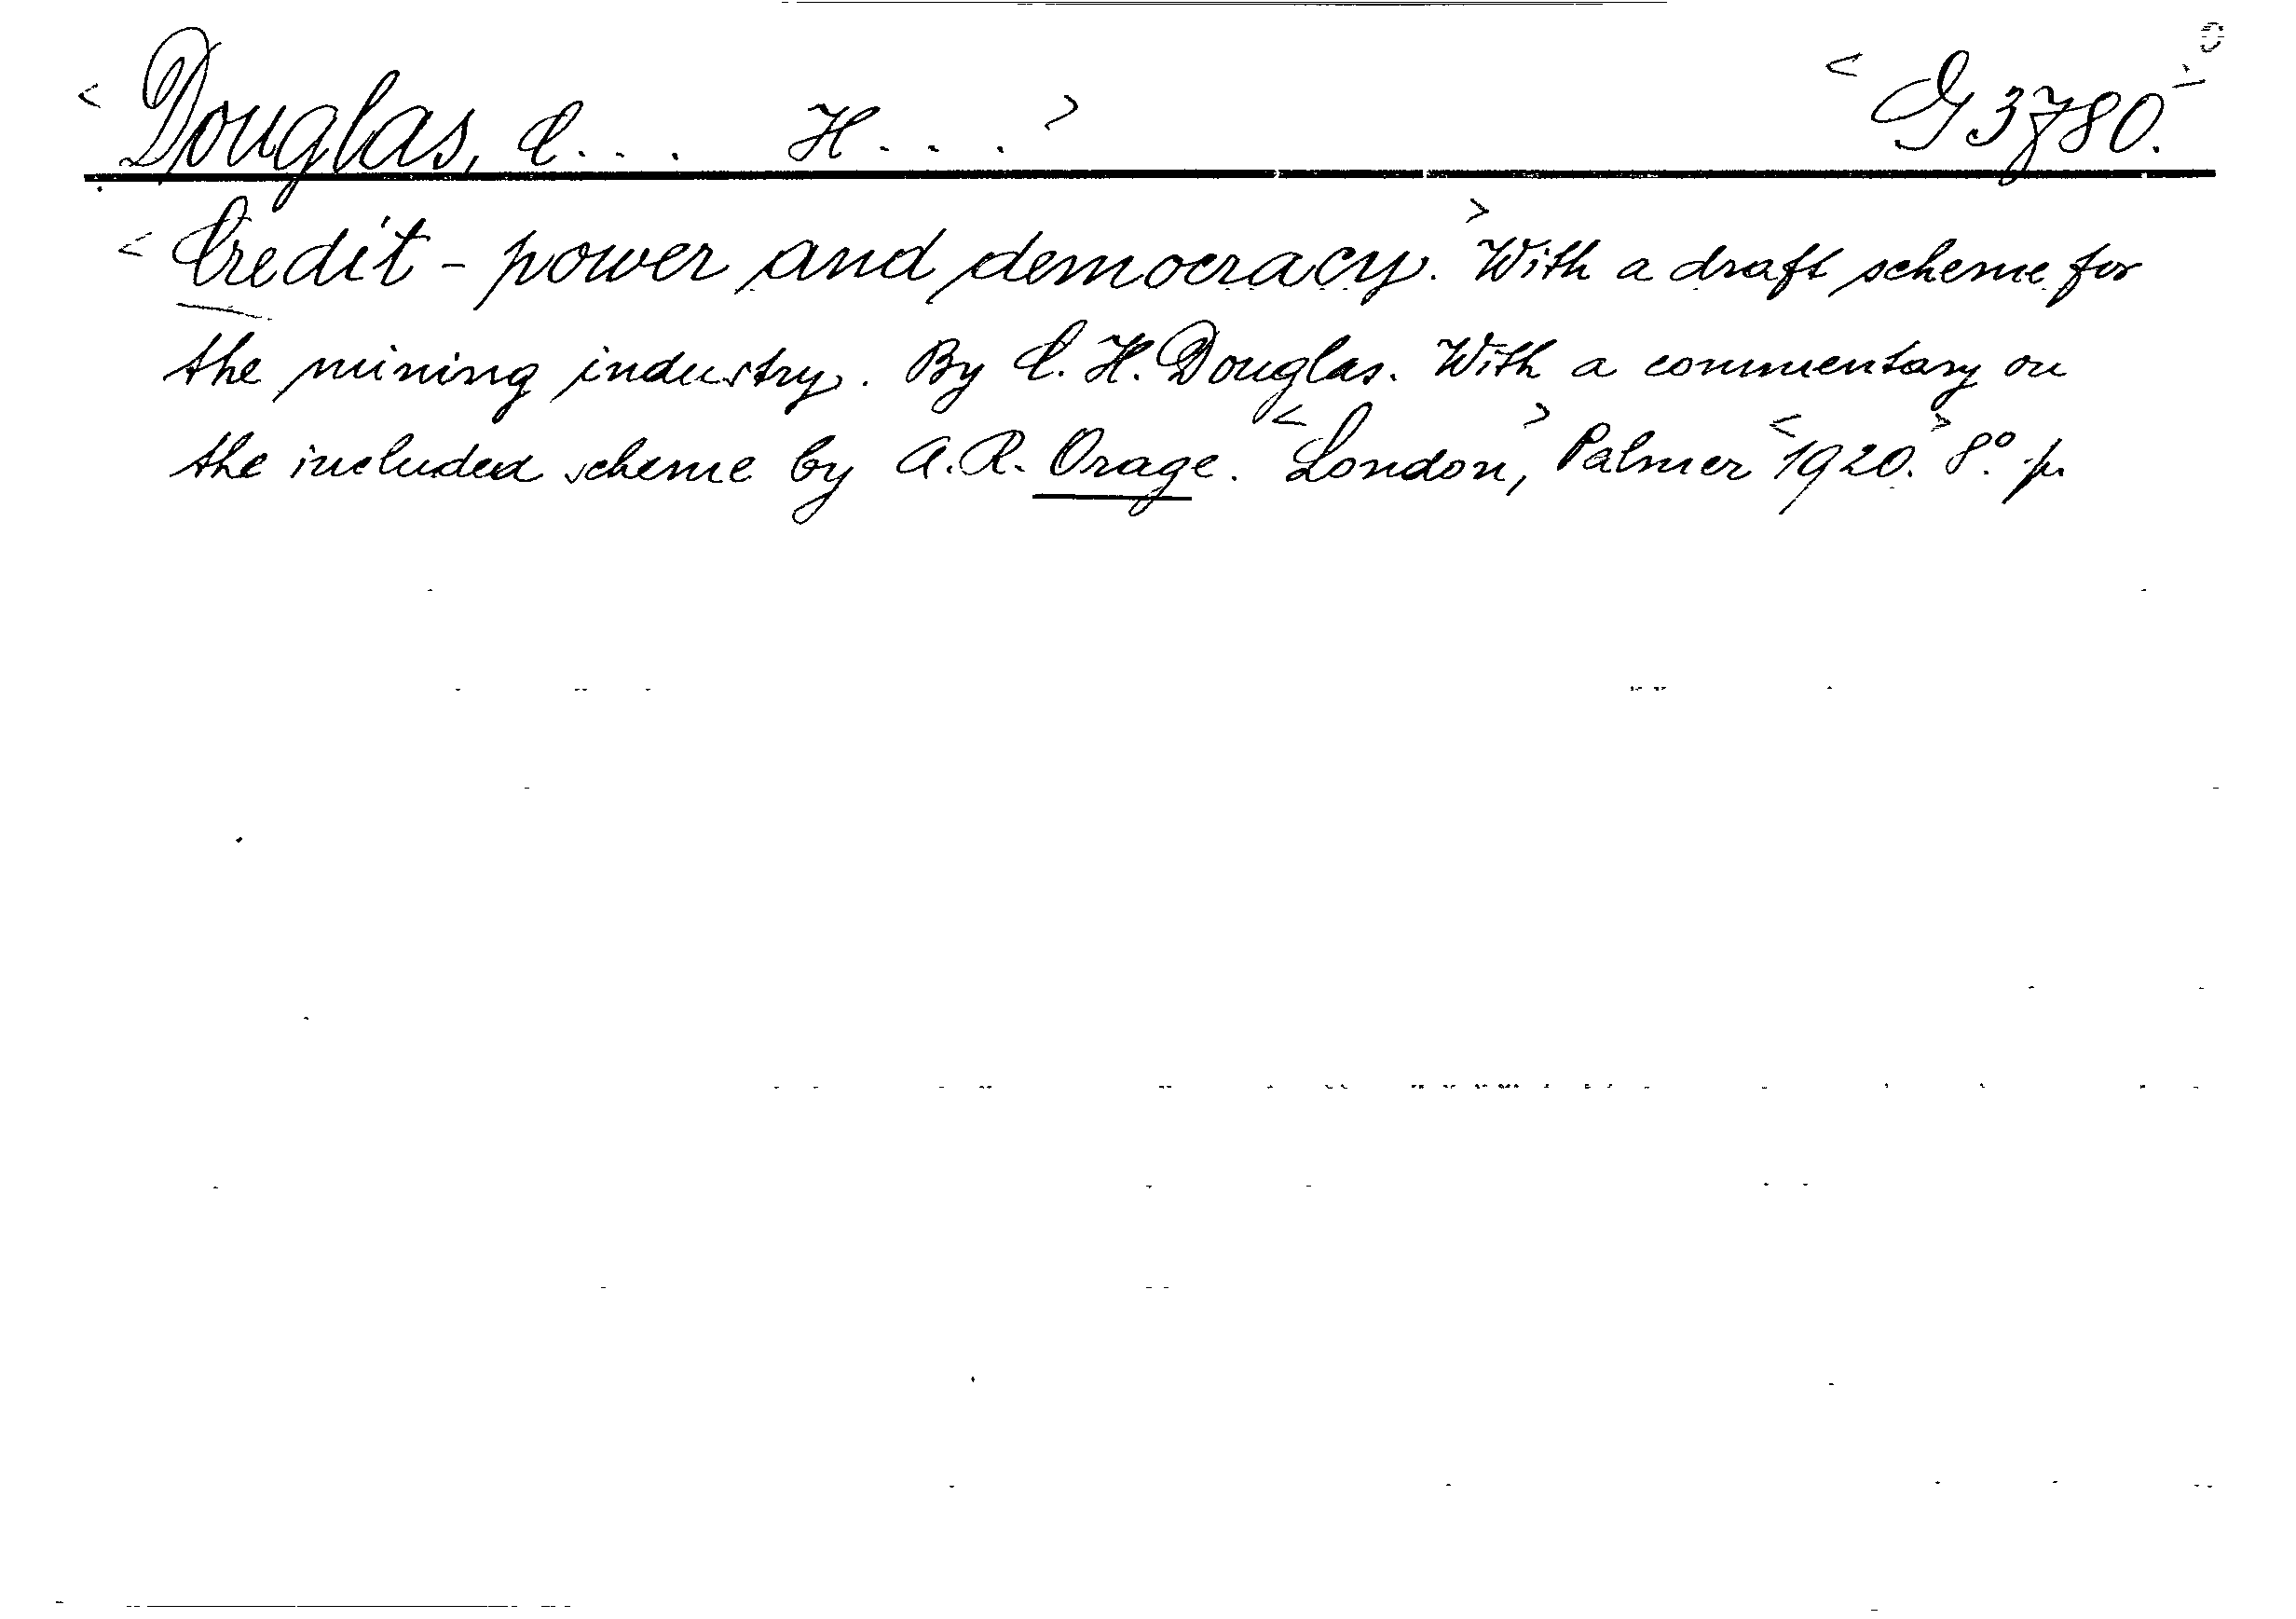 < Douglas, C... H...> < G 3780. >
< Credit - power and democracy. > With a draft scheme for
the mining industry. By C. H. Douglas. With a commentary on
the included scheme by A. R. Orage. < London, > Palmer < 1920. > 8°. p.